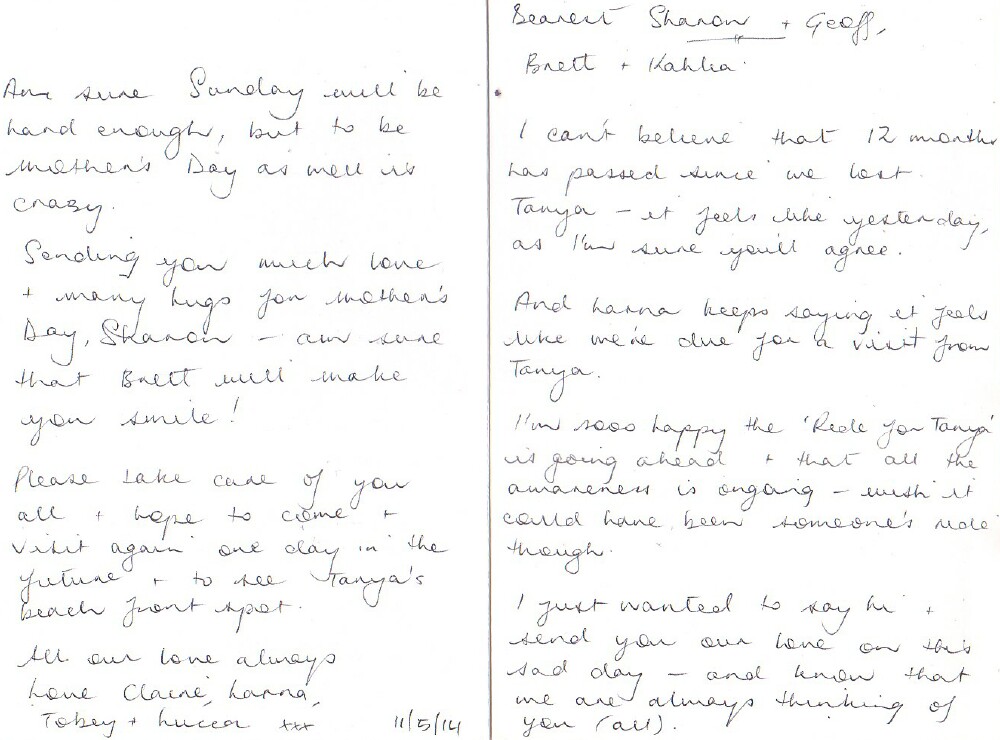 Dearest Sharon + Geoff,
Brett + Kahlia.
I can't believe that 12 months
has passed since we lost
Tanya – it feels like yesterday,
as I'm sure you'll agree.
And Lanna keeps saying it feels
like we're due for a visit from
Tanya.
I'm sooo happy the 'Ride for Tanya'
is going ahead + that all the
awareness is ongoing – wish it
could have been someone's ride
though.
I just wanted to say hi +
send you our love on this
sad day – and know that
we are always thinking of
you (all).
Am sure Sunday will be
hard enough, but to be
Mother's Day as well is
crazy.
Sending you much love
+ many hugs for Mother's
Day, Sharon – am sure
that Brett will make
you smile!
Please take care of you
all + hope to come +
visit again one day in the
future + to see Tanya's
beach front spot.
All our love always
Love Claire, Lanna,
Tobey + Lucca xxx 11/5/14